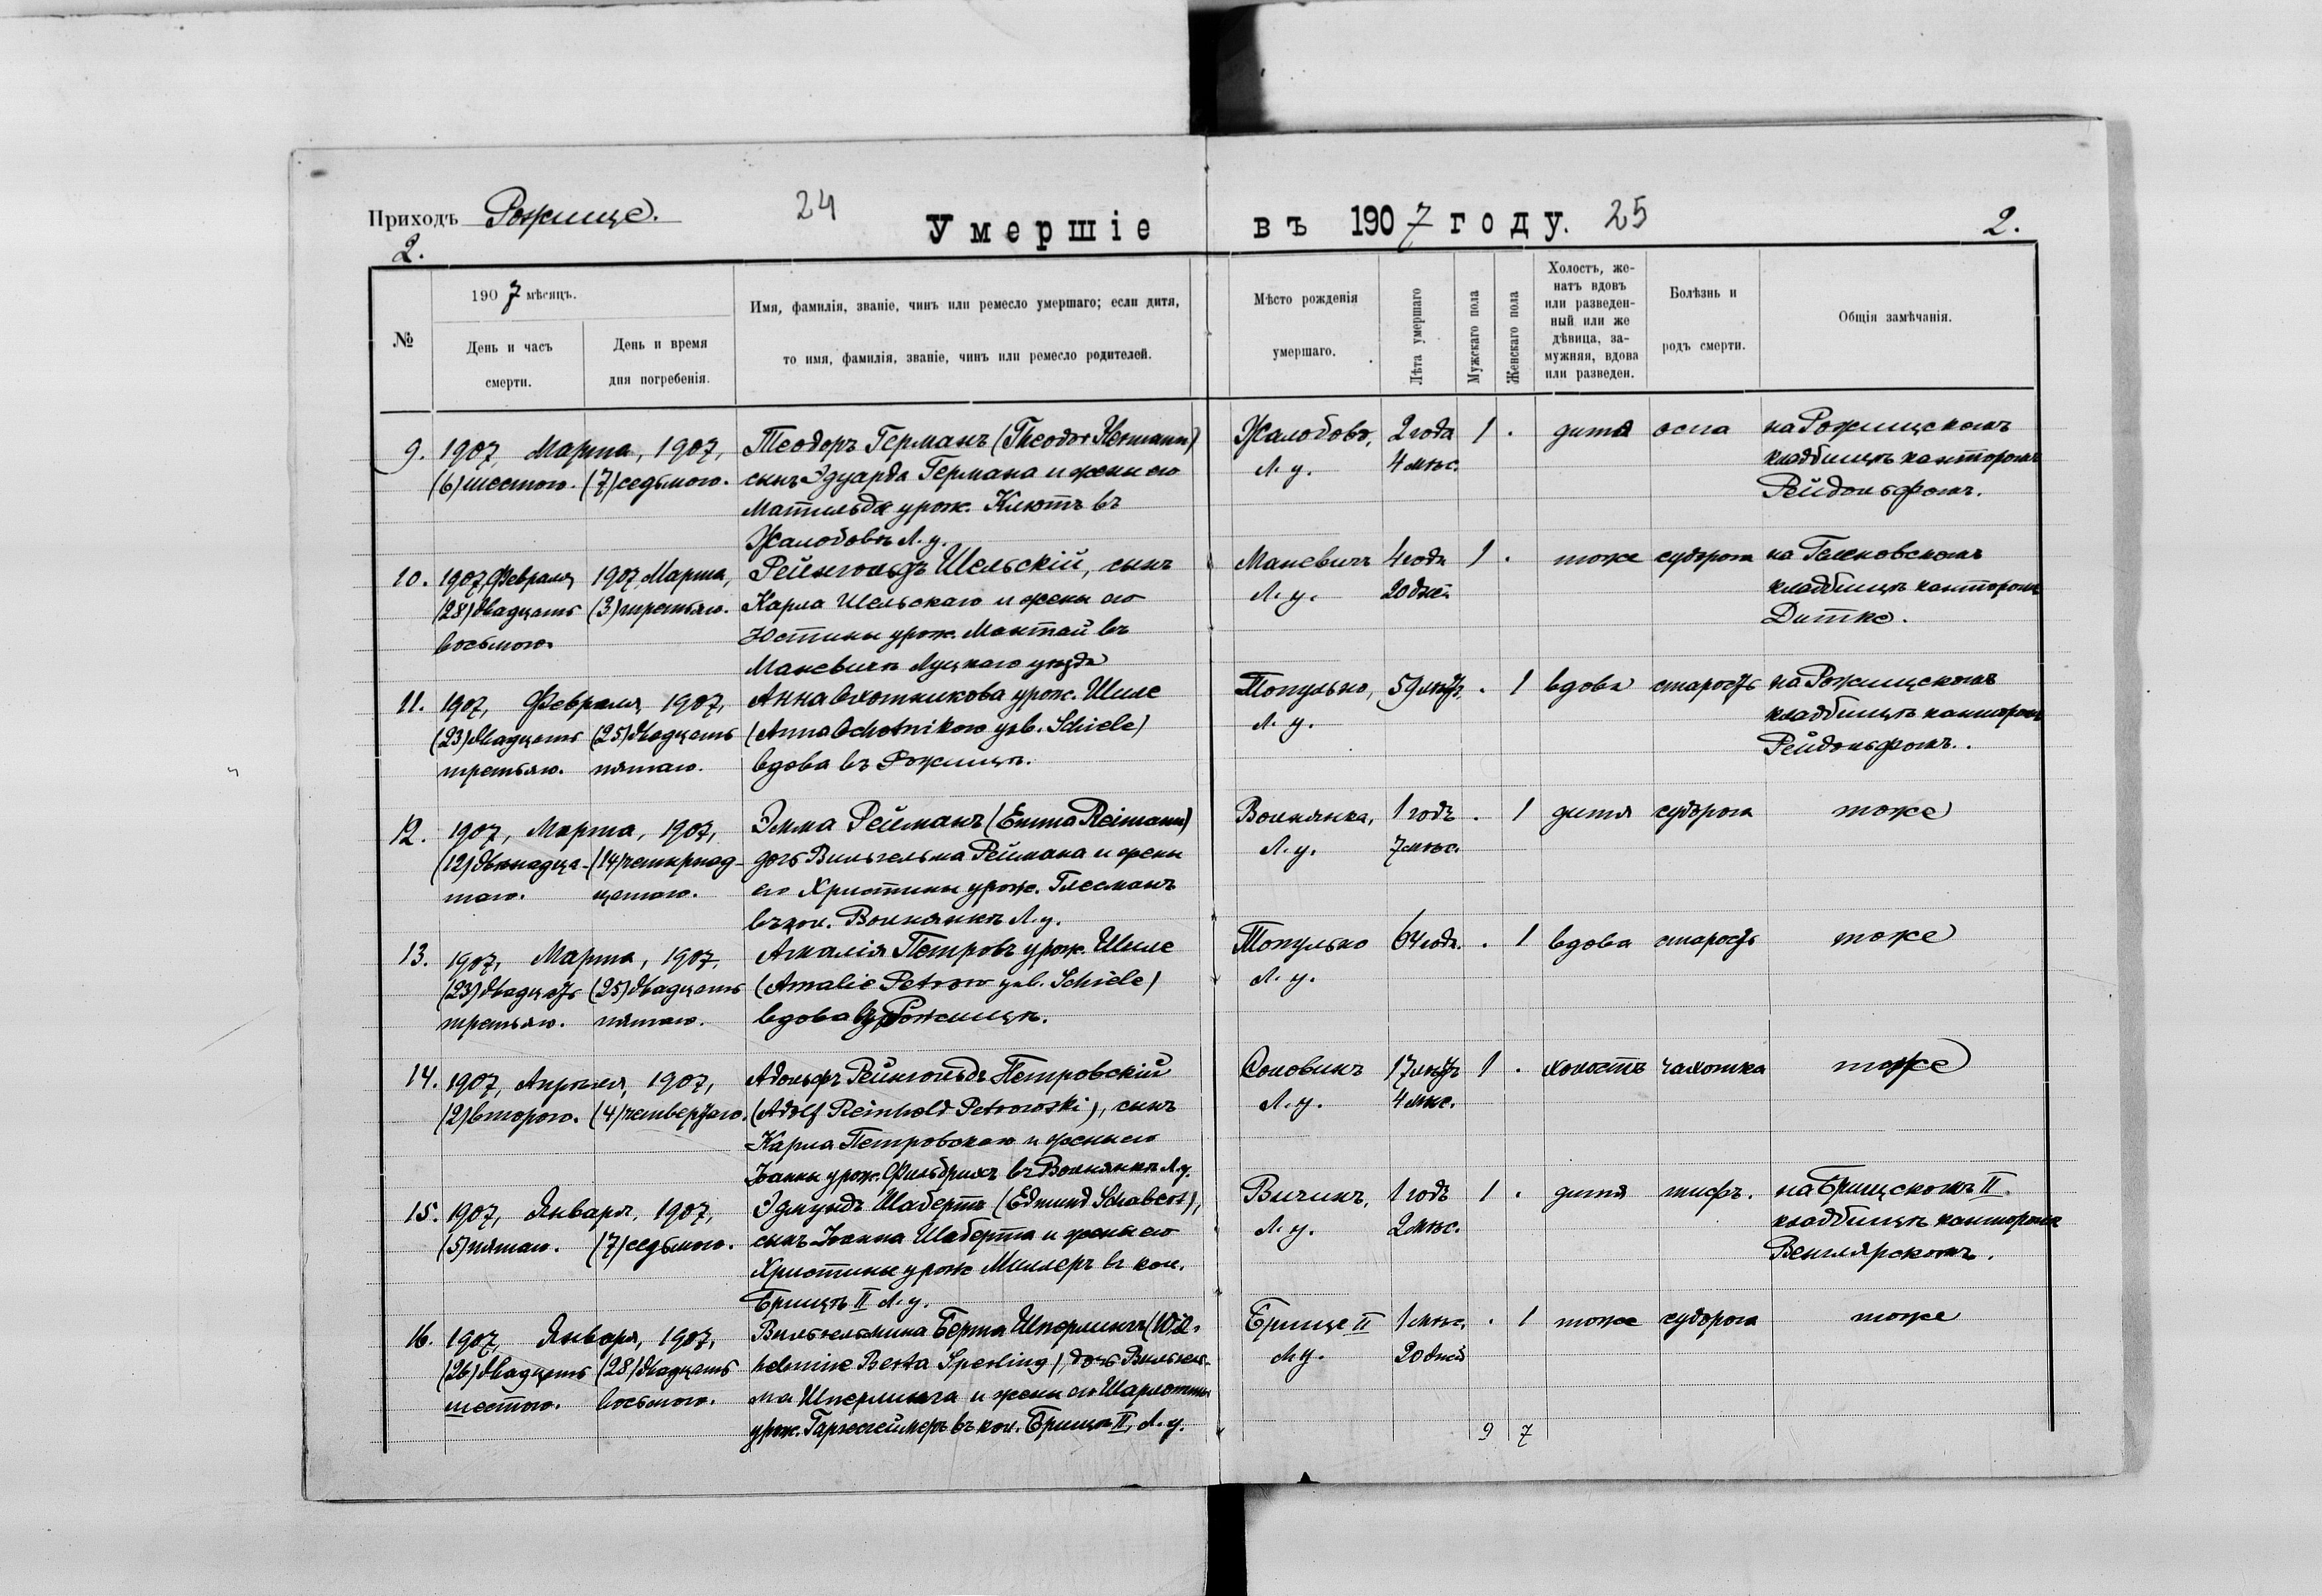 Приходъ Рожище.
24
Умершіе
въ 1907 году.
25
2.
2.
№
1907 мѣсяцъ.
День и часъ смерти.
День и время дня погребенія.
Имя, фамилія, званіе, чинъ или ремесло умершаго; если дитя,
то имя, фамилія, званіе, чинъ или ремесло родителей.
Мѣсто рожденія
умершаго.
Лѣта умершаго
Мужскаго пола
Женскаго пола
Холостъ, же-
натъ вдовъ
или разведен-
ный или же
дѣвица, за-
мужняя, вдова
или разведен.
Болѣзнь и
родъ смерти.
Общія замѣчанія.
9. 1907, Марта, 1907, Теодоръ Германъ (Theodor Hermann) Жалобово, 2 года 1 . дитя оспа на Рожищскомъ
(6) шестого. (7) седьмого. сынъ Эдуарда Германа и жены его Л. у. 4 мѣс. кладбищѣ канторомъ
Матильды урож. Клютъ въ Рейдольфомъ.
Жалобовѣ Л. у.
10. 1907, Февраля 1907 Марта, Рейнгольдъ Шельскій, сынъ Маневичъ 4 года 1 . тоже судорога на
(28) двадцать (3) третьяго. Карла Шельскаго и жены его Л. у. 20 дней кладбищѣ канторомъ
восьмого. Юстины урож. Монтай въ Дитке.
Маневичѣ Луцкаго уѣзда
11. 1907, Февраля, 1907, Анна Охотникова урож. Шиле Топульно, 59 лѣтъ . 1 вдова старость на Рожищскомъ
(23) двадцать (25) двадцать (Anna Ochotnikow geb. Schiele) Л. у. кладбищѣ канторомъ
третьяго. пятаго. вдова въ Рожищѣ. Рейдольфомъ.
12. 1907, Марта, 1907, Эмма Рейманъ (Emma Reimann) Волнянка, 1 годъ . 1 дитя судорога тоже
(12) двѣнадца- (14) четырнад- дочь Вильгельма Реймана и жены Л. у. 7 мѣс.
таго. цатаго. его Христины урож. Глесманъ
въ кол. Волнянкѣ Л. у.
13. 1907, Марта, 1907, Амалія Петровъ урож. Шиле Топульно 64 года . 1 вдова старость тоже
(23) двадцать (25) двадцать (Amalie Petrow geb. Schiele) Л. у.
третьяго. пятаго. вдова въ Рожищѣ.
14. 1907, Апрѣля, 1907, Адольфъ Рейнгольдъ Петровскій 17 лѣтъ 1 . холостъ чахотка тоже
(2) второго. (4) четвертаго. (Adolf Reinhold Petrowski), сынъ Л. у. 4 мѣс.
Карла Петровскаго и жены его
Іоанны урож. въ Волнянкѣ Л. у.
15. 1907, Января, 1907, Эдмундъ Шабертъ (Edmund Schabert), Вичинъ, 1 годъ 1 . дитя тифъ. на Брищскомъ II.
(5) пятаго. (7) седьмого. сынъ Іоанна Шаберта и жены его Л. у. 2 мѣс. кладбищѣ канторомъ
Христины урож. Миллеръ въ кол. Венглярскомъ.
Брищѣ II Л. у.
16. 1907 Января, 1907, Вильгельмина Берта Шперлингъ (Wil- Брище II 1 мѣс. . 1 тоже судорога тоже
(26) двадцать (28) двадцать helmine Berta Sperling), дочь Вильгель- Л. у. 20 дней
шестого. восьмого. ма Шперлинга и жены его Шарлотты
урож. въ кол. Брищѣ II, Л. у. 9 7